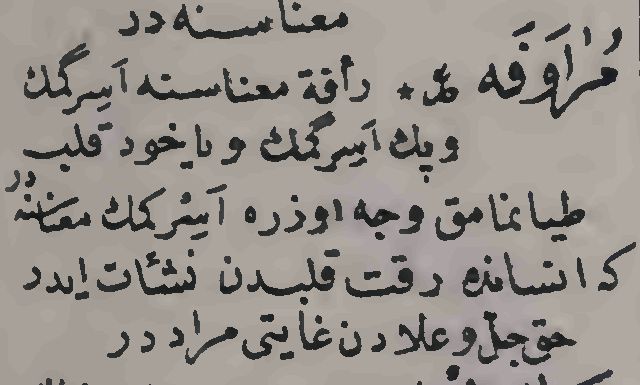 معناسنه در
مُرَاوَفَه رأفة معناسنه اَسِرگمك
وپك اَسِرگمك ویاخود قلب
طیانمامق وجه اوزره اَسِرْگمك معناسنه در
كه انسانده رقت قلبدن نشئات ایدر
حق جل وعلادن غایتی مراددر